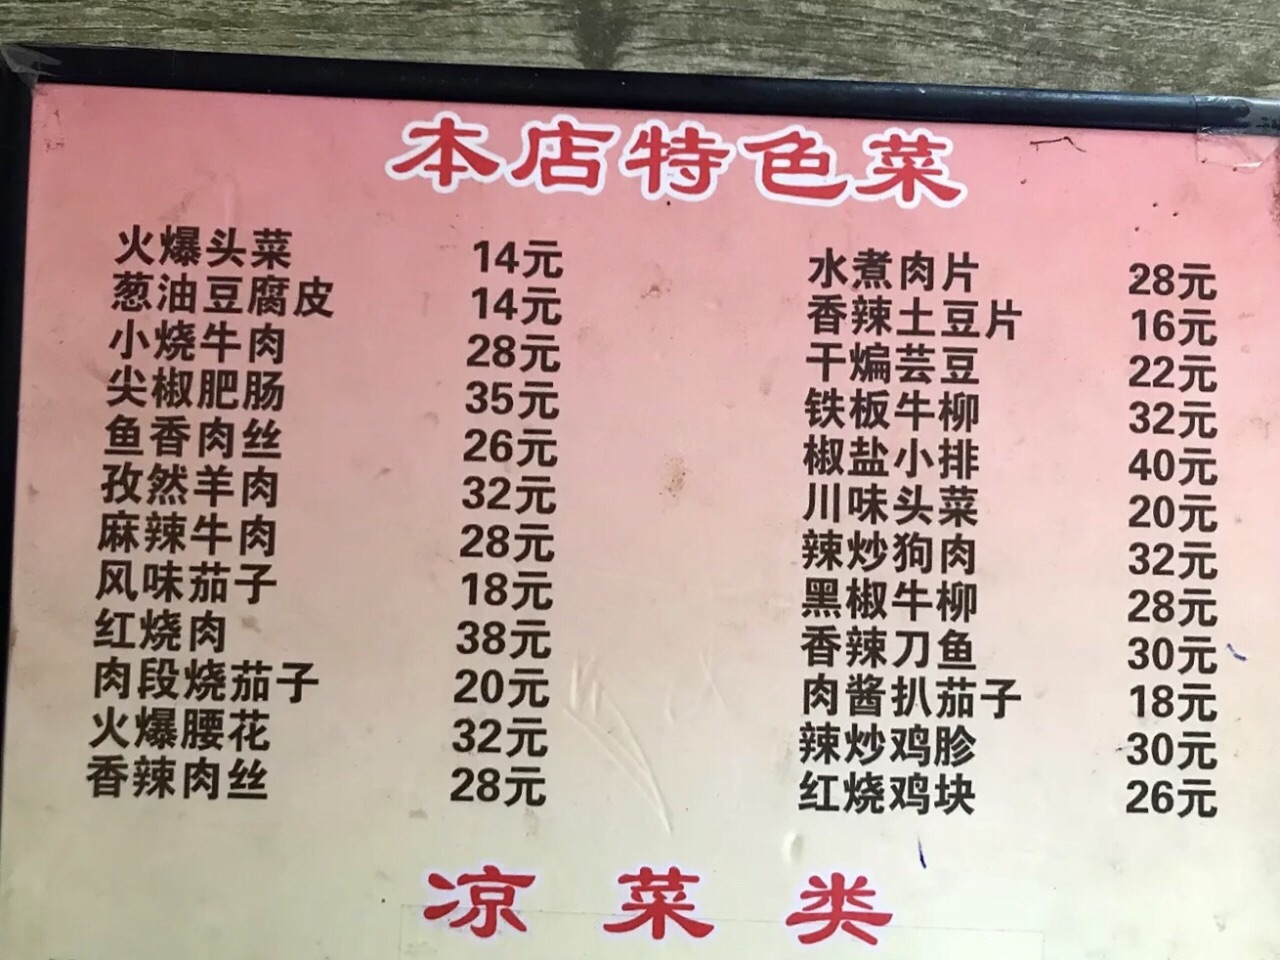 本店特色菜
火爆头菜 14元
葱油豆腐皮 14元
小烧牛肉 28元
尖椒肥肠 35元
鱼香肉丝 26元
孜然羊肉 32元
麻辣牛肉 28元
风味茄子 18元
红烧肉 38元
肉段烧茄子 20元
火爆腰花 32元
香辣肉丝 28元
水煮肉片 28元
香辣土豆片 16元
干煸芸豆 22元
铁板牛柳 32元
椒盐小排 40元
川味头菜 20元
辣炒狗肉 32元
黑椒牛柳 28元
香辣刀鱼 30元
肉酱扒茄子 18元
辣炒鸡胗 30元
红烧鸡块 26元
凉菜类